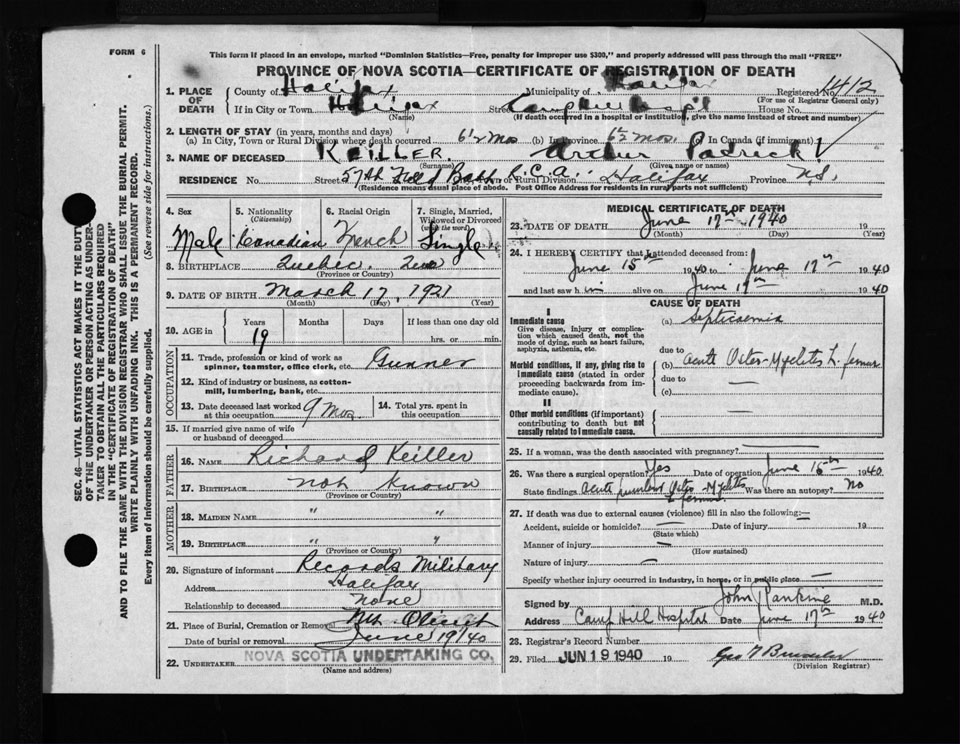 FORM 6
This form if placed in an envelope, marked "Dominion Statistics—Free, penalty for improper use $300," and properly addressed will pass through the mail "FREE"
PROVINCE OF NOVA SCOTIA—CERTIFICATE OF REGISTRATION OF DEATH
1. PLACE OF DEATH County of Halifax Municipality of Halifax Registered No. 1412
(For use of Registrar General only)
If in City or Town Halifax Street Camp Hill Hospital House No.
(Name) (If death occurred in a hospital or institution, give the name instead of street and number)
2. LENGTH OF STAY (in years, months and days)
(a) In City, Town or Rural Division where death occurred 6½ Mos (b) In Province 6½ Mos. (c) In Canada (if immigrant)
3. NAME OF DECEASED KEILLER. Arthur Padrick
(Surname) (Given name or names)
RESIDENCE No. Street 57th Field Batt. R.C.A. or Rural Division Halifax Province N.S.
(Residence means usual place of abode. Post Office Address for residents in rural parts not sufficient)
4. Sex Male
5. Nationality (Citizenship) Canadian
6. Racial Origin French
7. Single, Married, Widowed or Divorced (write the word) Single
8. BIRTHPLACE Quebec, Que
(Province or Country)
9. DATE OF BIRTH March 17, 1921
(Month) (Day) (Year)
10. AGE in Years 19 Months Days If less than one day old hrs. or min.
OCCUPATION
11. Trade, profession or kind of work as spinner, teamster, office clerk, etc. Gunner
12. Kind of industry or business, as cotton-mill, lumbering, bank, etc.
13. Date deceased last worked at this occupation 9 Mos.
14. Total yrs. spent in this occupation
15. If married give name of wife or husband of deceased
FATHER
16. NAME Richard Keiller
17. BIRTHPLACE not known
(Province or Country)
MOTHER
18. MAIDEN NAME " "
19. BIRTHPLACE " "
(Province or Country)
20. Signature of informant Records Military
Address Halifax
Relationship to deceased None
21. Place of Burial, Cremation or Removal Mt. Olivet
Date of burial or removal June 19/40
22. UNDERTAKER NOVA SCOTIA UNDERTAKING CO.
(Name and address)
MEDICAL CERTIFICATE OF DEATH
23. DATE OF DEATH June 17th 1940 19
(Month) (Day) (Year)
24. I HEREBY CERTIFY that I attended deceased from:
June 15th 1940 to June 17th 1940
and last saw him alive on June 17th 1940
CAUSE OF DEATH
I
Immediate cause (a) Septicaemia
Give disease, injury or complication which caused death, not the mode of dying, such as heart failure, asphyxia, asthenia, etc.
due to
Morbid conditions, if any, giving rise to immediate cause (stated in order proceeding backwards from immediate cause).
(b) acute Osteo-Myelitis L. femur
due to —
(c)
II
Other morbid conditions (if important) contributing to death but not causally related to immediate cause. —
25. If a woman, was the death associated with pregnancy? —
26. Was there a surgical operation? Yes Date of operation June 15th 1940
State findings acute Osteo-Myelitis L femur Was there an autopsy? No
27. If death was due to external causes (violence) fill in also the following:—
Accident, suicide or homicide? — Date of injury 19
(State which)
Manner of injury —
(How sustained)
Nature of injury —
Specify whether injury occurred in industry, in home, or in public place —
Signed by John Rankine M.D.
Address Camp Hill Hospital Date June 17th 1940
28. Registrar's Record Number
29. Filed JUN 19 1940 19
(Division Registrar)
SEC. 46—VITAL STATISTICS ACT MAKES IT THE DUTY
OF THE UNDERTAKER OR PERSON ACTING AS UNDER-
TAKER TO OBTAIN ALL THE PARTICULARS REQUIRED
IN THE "CERTIFICATE OF REGISTRATION OF DEATH"
AND TO FILE THE SAME WITH THE DIVISION REGISTRAR WHO SHALL ISSUE THE BURIAL PERMIT.
WRITE PLAINLY WITH UNFADING INK. THIS IS A PERMANENT RECORD.
Every item of information should be carefully supplied. (See reverse side for instructions.)